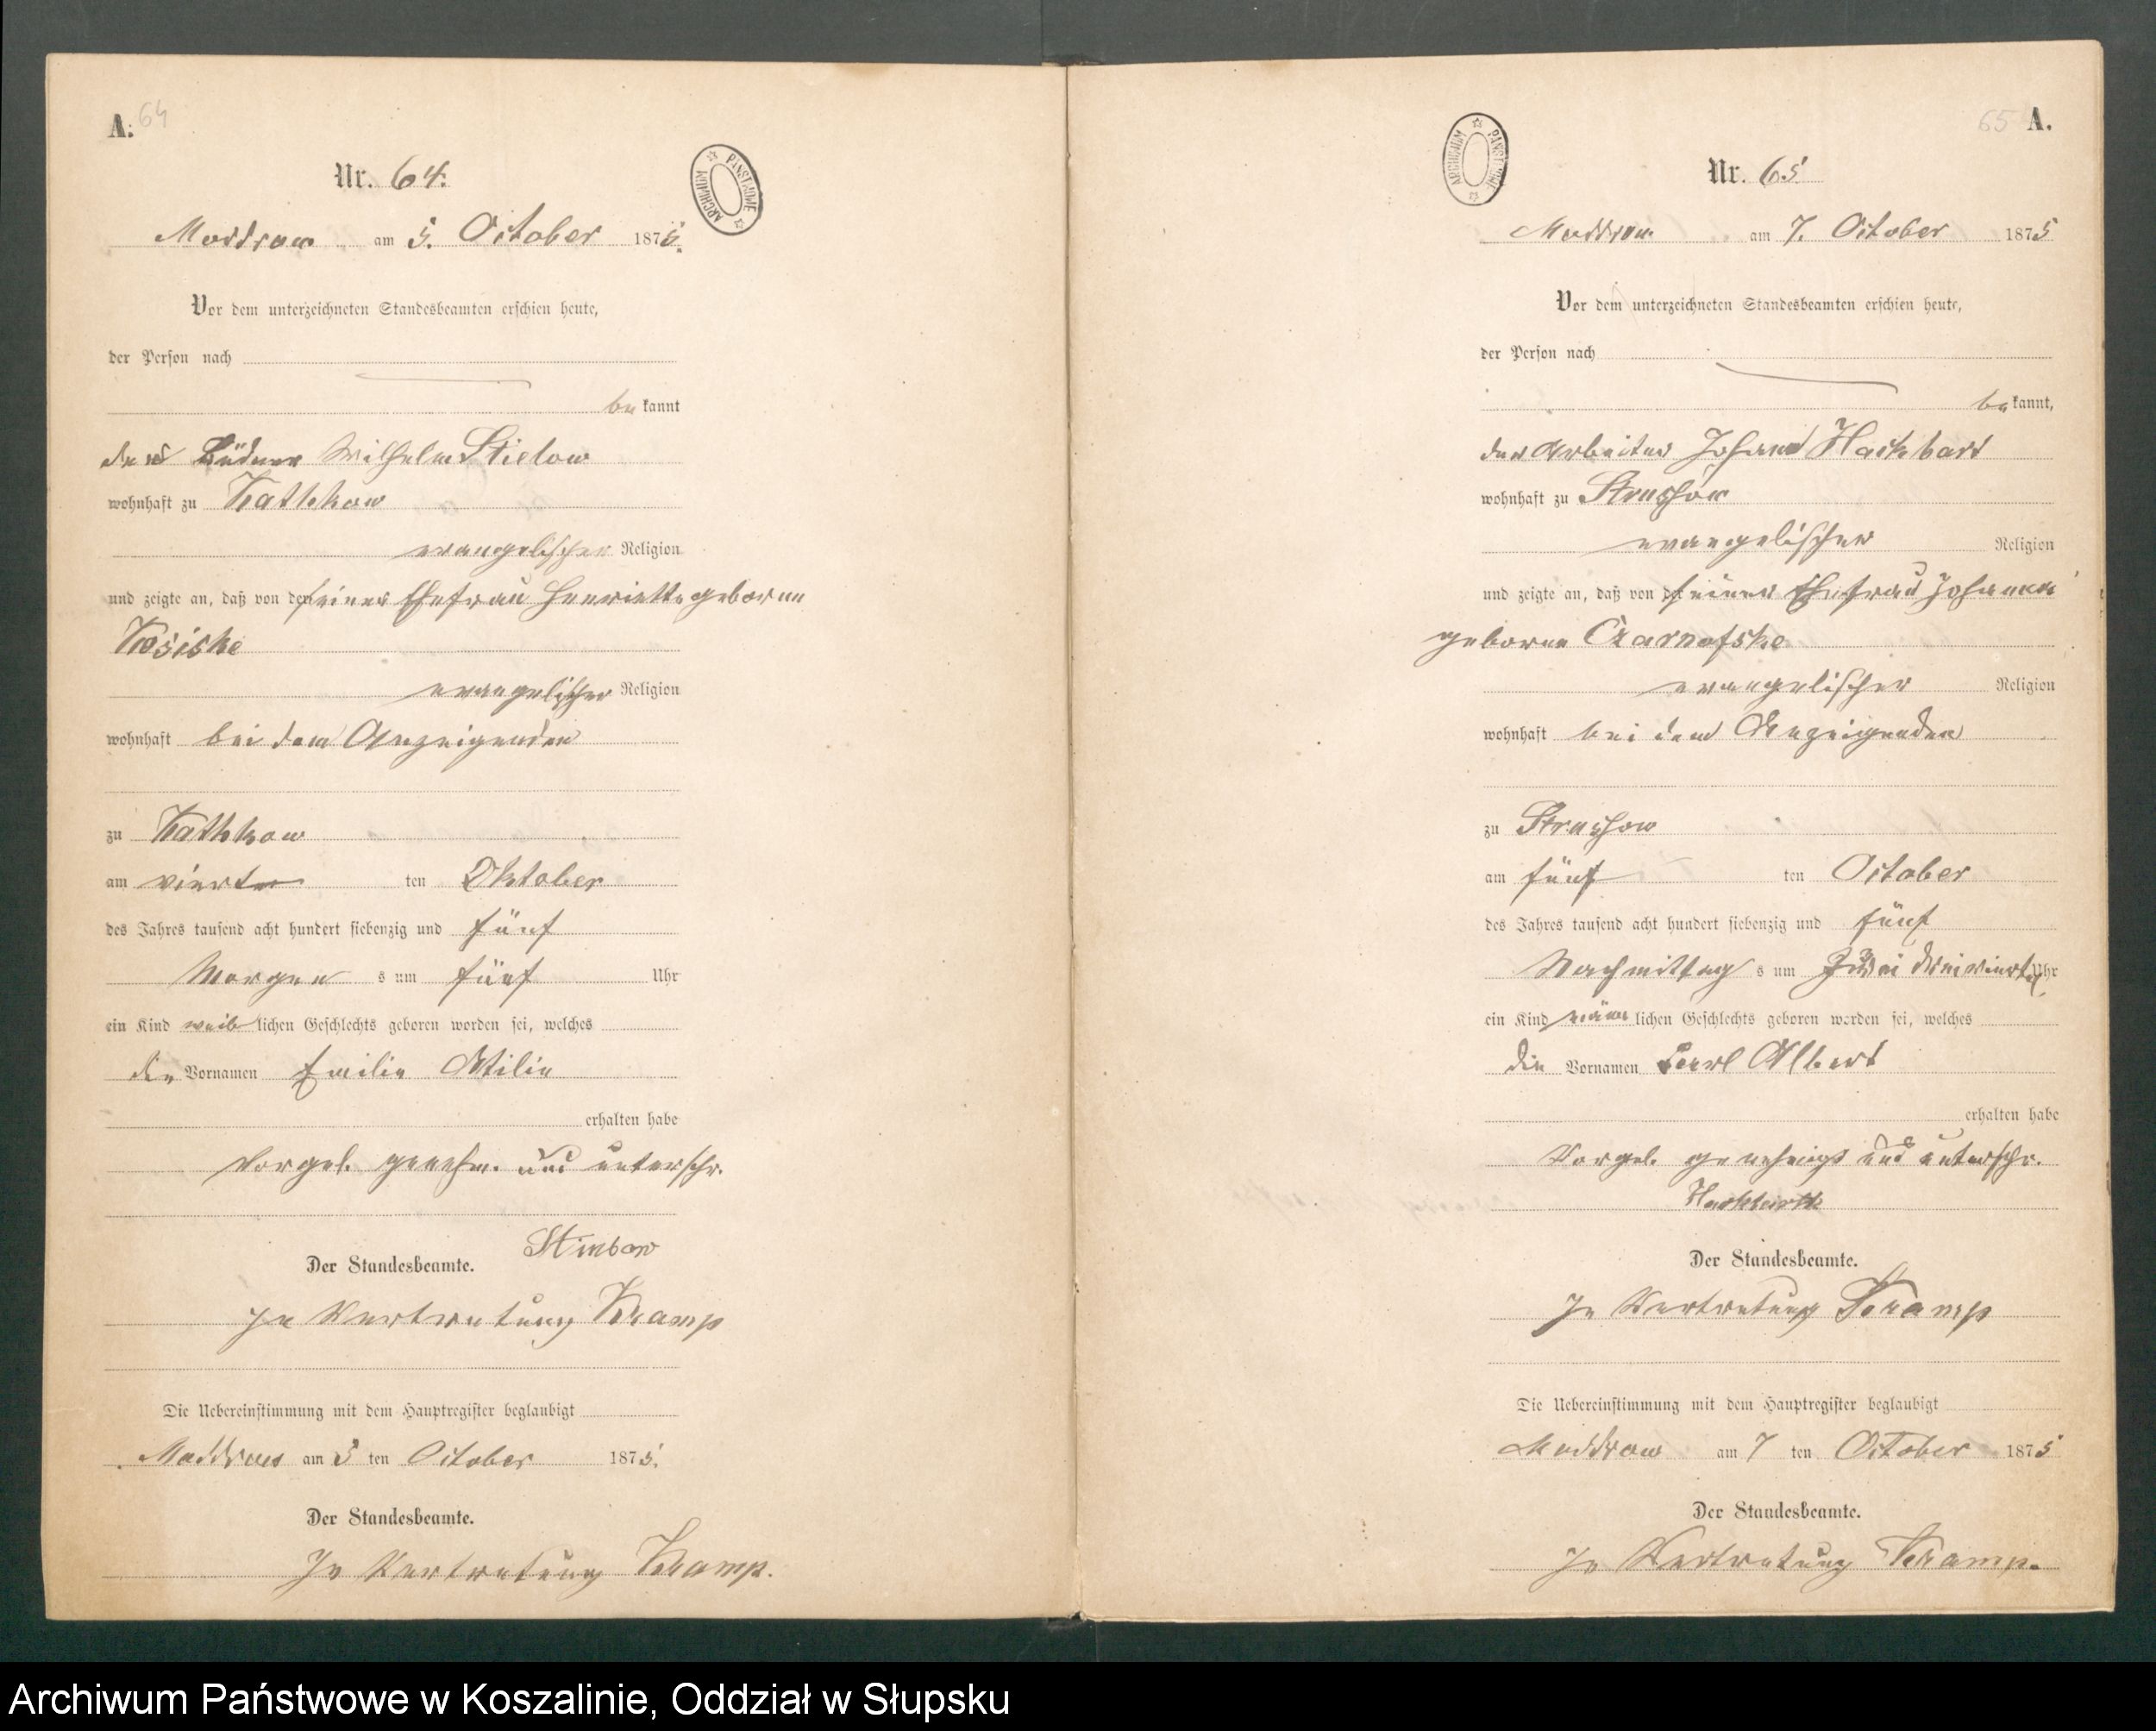 A. 64
Nr. 64.
ARCHIWUM PAŃSTWOWE
Moddrow am 5. October 1875.
Vor dem unterzeichneten Standesbeamten erschien heute,
der Person nach
be kannt
der Büdner Wilhelm Stielow
wohnhaft zu Kathkow
evangelischer Religion
und zeigte an, daß von der seiner Ehefrau Henriette geborne
Kosiske
evangelischer Religion
wohnhaft bei dem Anzeigenden
zu Kathkow
am vierten ten Oktober
des Jahres tausend acht hundert siebenzig und fünf
Morgen s um fünf Uhr
ein Kind weib lichen Geschlechts geboren worden sei, welches
die Vornamen Emilie Ottilie
erhalten habe
Vorgel. genehm. und unterschr.
Der Standesbeamte.
In Vertretung Kramp
Die Uebereinstimmung mit dem Hauptregister beglaubigt
Moddrow am 5 ten October 1875.
Der Standesbeamte.
In Vertretung Kramp.
65 A.
Nr. 65
ARCHIWUM PAŃSTWOWE
Moddrow am 7. October 1875
Vor dem unterzeichneten Standesbeamten erschien heute,
der Person nach
be kannt,
der Arbeiter Johann Hackbart
wohnhaft zu Strussow
evangelischer Religion
und zeigte an, daß von der seiner Ehefrau Johanna
geborne Czarnofske
evangelischer Religion
wohnhaft bei dem Anzeigenden
zu Strussow
am fünf ten October
des Jahres tausend acht hundert siebenzig und fünf
Nachmittag s um Zwei dreiviertel Uhr
ein Kind männ lichen Geschlechts geboren worden sei, welches
die Vornamen Carl Albert
erhalten habe
Vorgel. genehmigt und unterschr.
Hackbarth
Der Standesbeamte.
In Vertretung Kramp
Die Uebereinstimmung mit dem Hauptregister beglaubigt
Moddrow am 7 ten October 1875
Der Standesbeamte.
In Vertretung Kramp.
Archiwum Państwowe w Koszalinie, Oddział w Słupsku